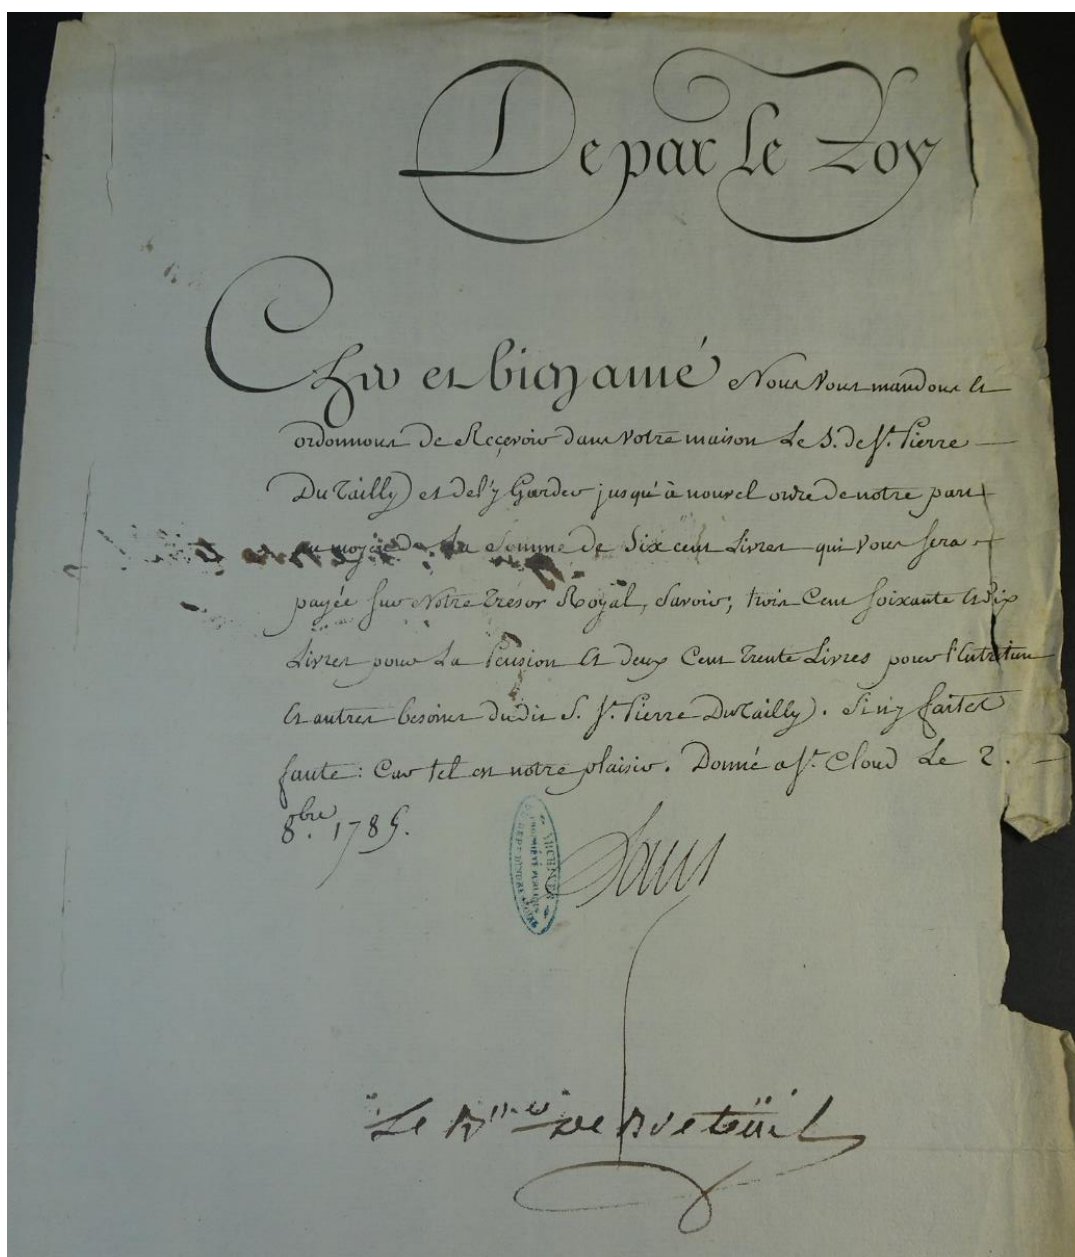 De par le Roy
Cher et bien amé Nous Vous mandons et
ordonnons de Reçevoir dans votre maison Le S. de St. Pierre
Du Tailly et de l'y Garder jusqu'à nouvel ordre de notre part
au moyen de La Somme de Six cent Livres qui Vous sera
payée sur Notre Trésor Royal, Savoir; trois Cent soixante et dix
Livres pour La Pension et deux Cent Trente Livres pour l'Entretien
et autres besoins dudit S. St. Pierre Du Tailly. Si n'y faites
faute: Car tel est notre plaisir. Donné a St. Cloud Le 2.
8.bre 1785.
Louis
ARCHIVES
Le Bon de Breteüil